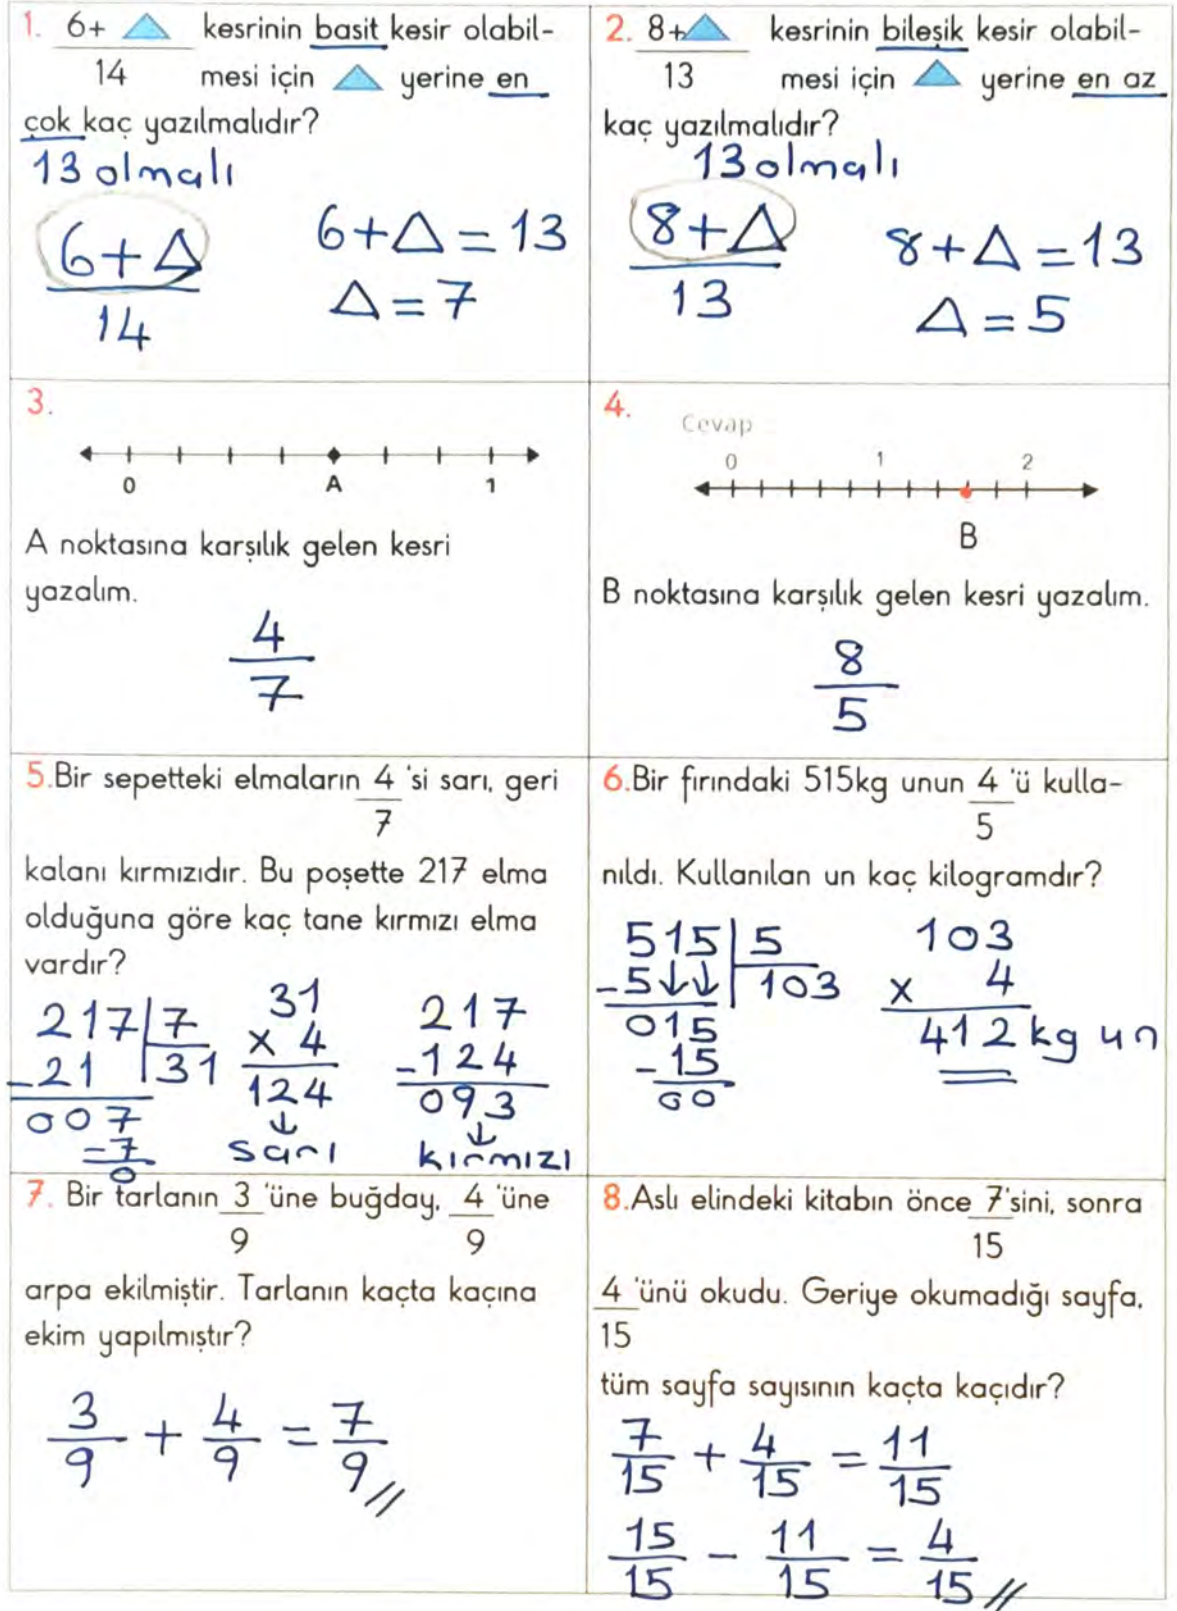 1. 6+ kesrinin basit kesir olabil-
14 mesi için yerine en
çok kaç yazılmalıdır?
13 olmalı
6+Δ
14
6+Δ=13
Δ=7
2. 8+ kesrinin bileşik kesir olabil-
13 mesi için yerine en az
kaç yazılmalıdır?
13 olmalı
8+Δ
13
8+Δ=13
Δ=5
3.
0 A 1
A noktasına karşılık gelen kesri
yazalım.
4
7
4.
Cevap
0 1 2
B
B noktasına karşılık gelen kesri yazalım.
8
5
5.Bir sepetteki elmaların 4 'si sarı, geri
7
kalanı kırmızıdır. Bu poşette 217 elma
olduğuna göre kaç tane kırmızı elma
vardır?
217 7
-21 31
007
-7
0
31
x 4
124
↓
sarı
217
-124
093
↓
kırmızı
6.Bir fırındaki 515kg unun 4 'ü kulla-
5
nıldı. Kullanılan un kaç kilogramdır?
515 5
-5↓↓ 103
015
-15
00
103
x 4
412 kg un
7. Bir tarlanın 3 'üne buğday, 4 'üne
9 9
arpa ekilmiştir. Tarlanın kaçta kaçına
ekim yapılmıştır?
3 + 4 = 7
9 9 9 //
8.Aslı elindeki kitabın önce 7'sini, sonra
15
4 'ünü okudu. Geriye okumadığı sayfa,
15
tüm sayfa sayısının kaçta kaçıdır?
7 + 4 = 11
15 15 15
15 - 11 = 4
15 15 15 //